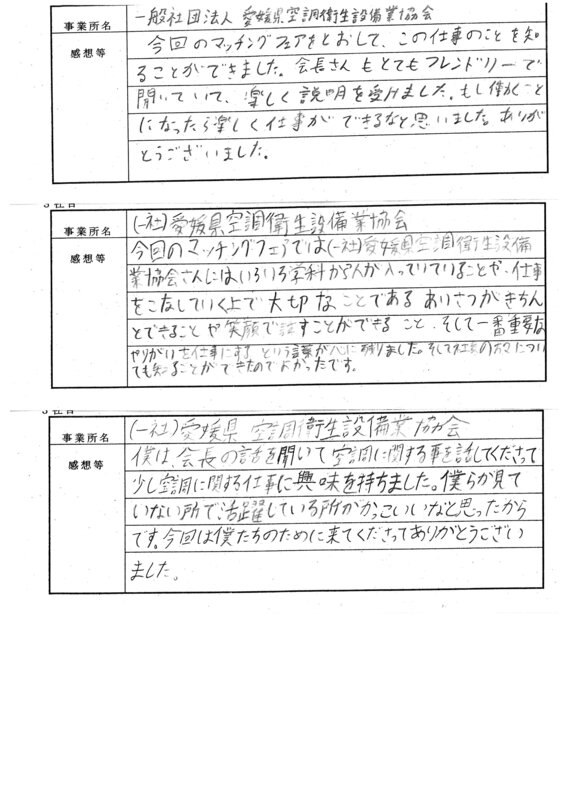 事業所名 一般社団法人 愛媛県空調衛生設備業協会
感想等 今回のマッチングフェアをとおして、この仕事のことを知
ることができました。会長さんもとてもフレンドリーで
聞いていて、楽しく説明を受けました。もし働くこと
になったら楽しく仕事ができるなと思いました。ありが
とうございました。
3社目
事業所名 (一社)愛媛県空調衛生設備業協会
感想等 今回のマッチングフェアでは(一社)愛媛県空調衛生設備
業協会さんにはいろいろ学科から人が入っていていることや、仕事
をこなしていく上で大切なことであるあいさつがきちん
とできることや笑顔で話すことができること、そして一番重要な
やりがいを仕事にするという言葉が心に残りました。そして社長の方々につい
ても知ることができたのでよかったです。
3社目
事業所名 (一社)愛媛県 空調衛生設備業協会
感想等 僕は会長の話を聞いて空調に関する事を話してくださって
少し空調に関する仕事に興味を持ちました。僕らが見て
いない所で活躍している所がかっこいいなと思ったから
です。今回は僕たちのために来てくださってありがとうござい
ました。